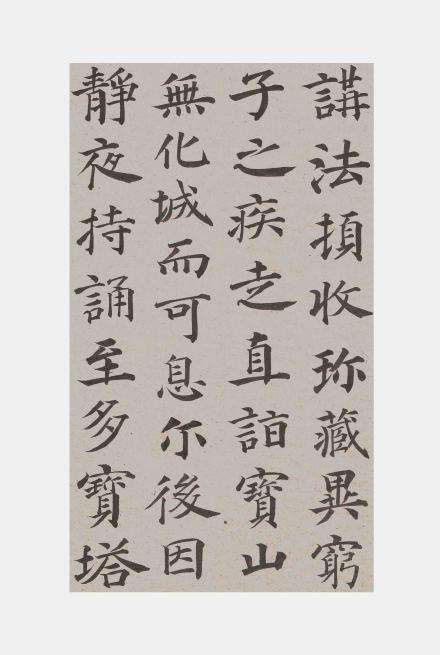 講法頓收珎藏異窮
子之疾走直詣寶山
無化城而可息尒後因
靜夜持誦至多寶塔